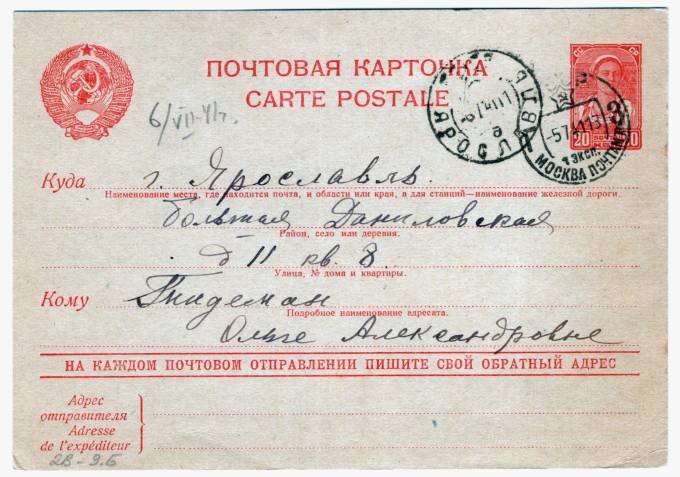 ПОЧТОВАЯ КАРТОЧКА
CARTE POSTALE
6/VII-41г.
ЯРОСЛАВЛЬ
-574113
1 ЭКСП.
МОСКВА ПОЧТАМТ
20
Куда г. Ярославль
Наименование места, где находится почта, и области или края, а для станций—наименование железной дороги.
Большая Даниловская
Район, село или деревня.
д 11 кв. 8
Улица, № дома и квартиры.
Кому Тидеман
Подробное наименование адресата.
Ольге Александровне
НА КАЖДОМ ПОЧТОВОМ ОТПРАВЛЕНИИ ПИШИТЕ СВОЙ ОБРАТНЫЙ АДРЕС
Адрес
отправителя
Adresse
de l'expéditeur
2В-9.Б